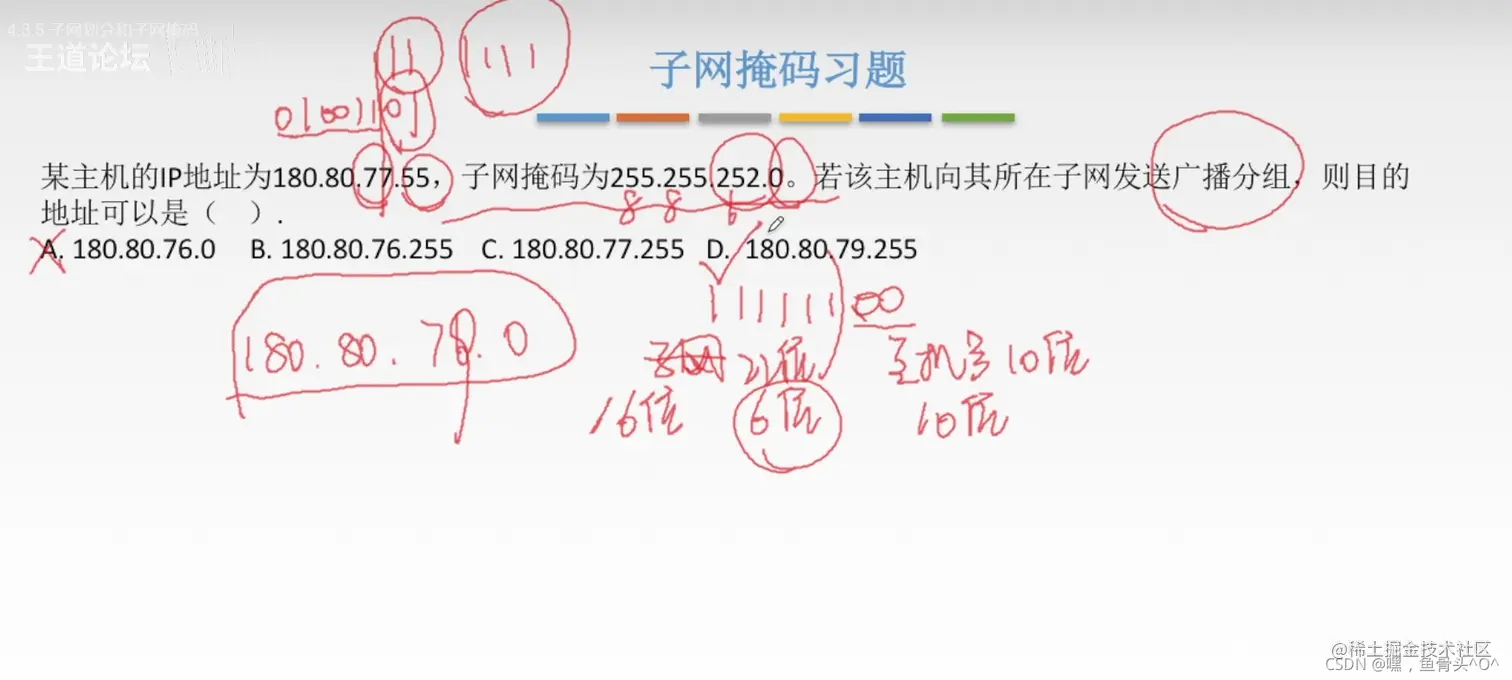 4.3.5 子网划分和子网掩码
王道论坛
11 111
01001101
子网掩码习题
某主机的IP地址为180.80.77.55，子网掩码为255.255.252.0。若该主机向其所在子网发送广播分组，则目的
8 8 6
地址可以是（ ）.
A. 180.80.76.0 B. 180.80.76.255 C. 180.80.77.255 D. 180.80.79.255
11111100
180.80.
.0
22位 主机号10位
16位 6位 10位
@稀土掘金技术社区
CSDN @嘿，鱼骨头^O^